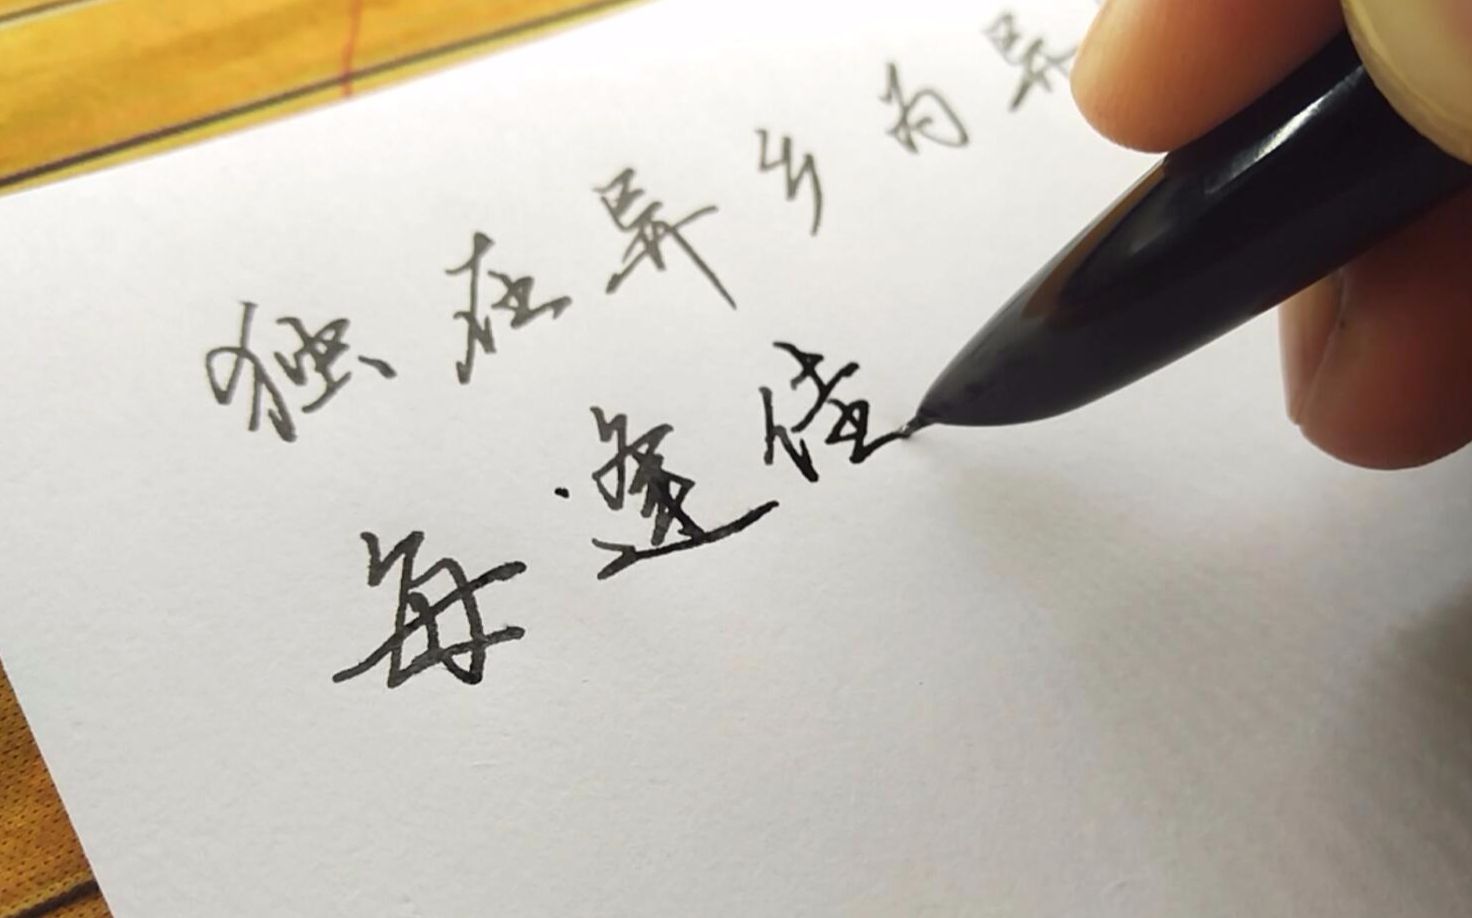 独在异乡为异
每逢佳